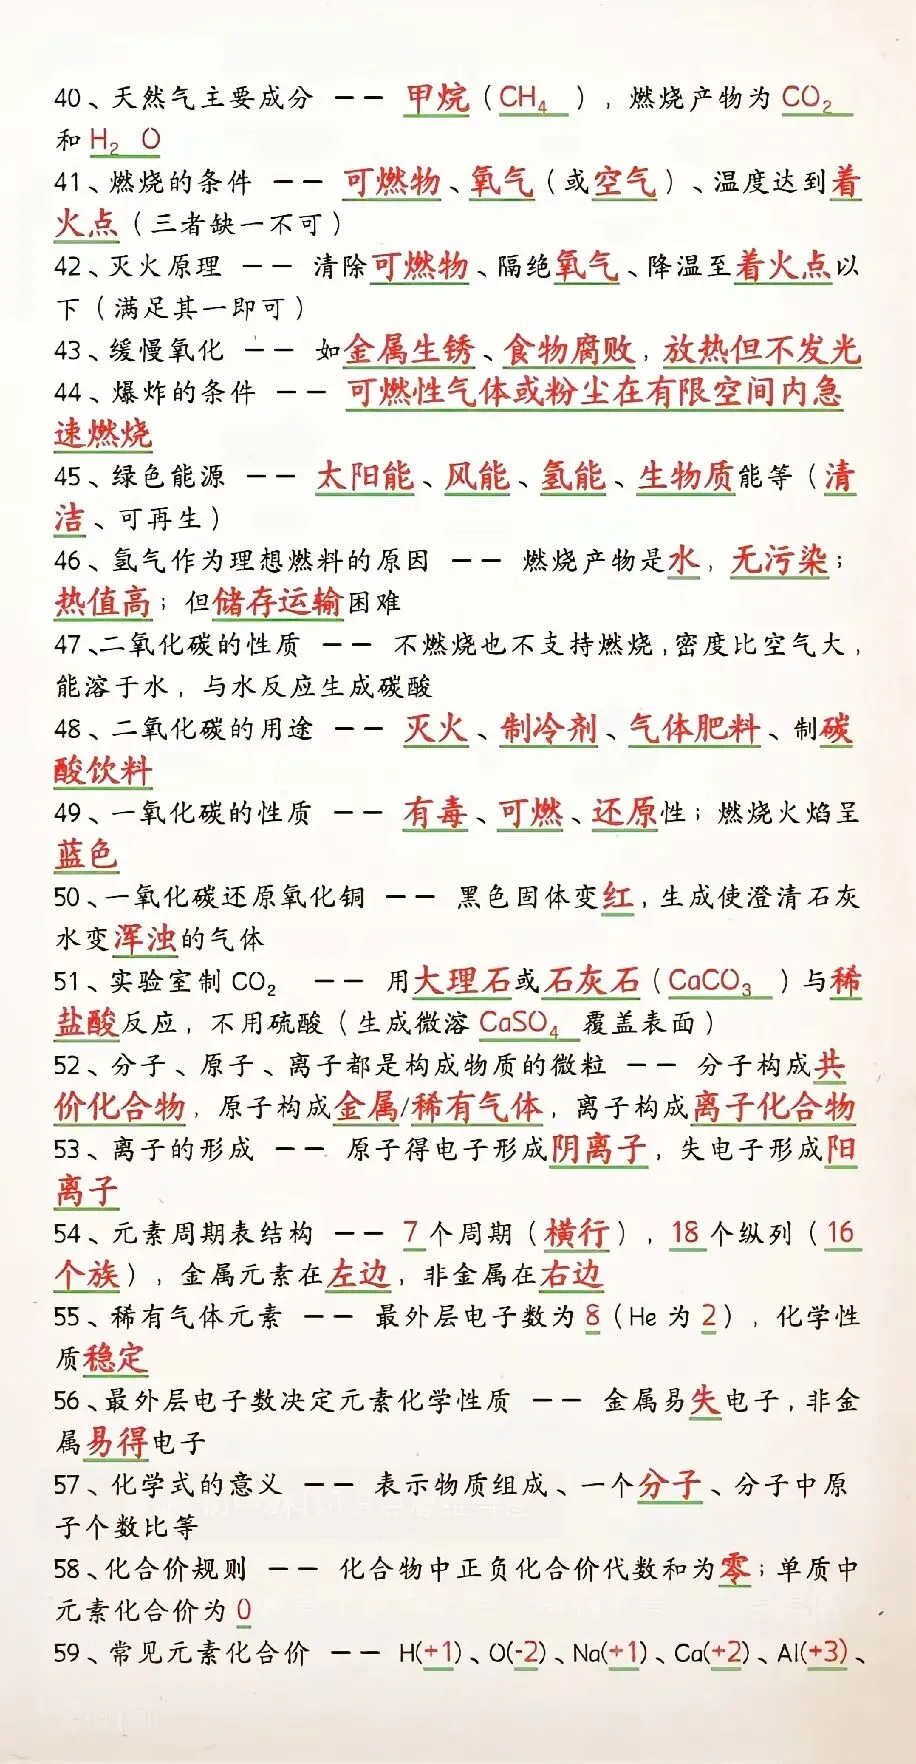 40、天然气主要成分 —— 甲烷（CH₄ ），燃烧产物为 CO₂
和 H₂ O
41、燃烧的条件 —— 可燃物、氧气（或空气）、温度达到着
火点（三者缺一不可）
42、灭火原理 —— 清除可燃物、隔绝氧气、降温至着火点以
下（满足其一即可）
43、缓慢氧化 —— 如金属生锈、食物腐败，放热但不发光
44、爆炸的条件 —— 可燃性气体或粉尘在有限空间内急
速燃烧
45、绿色能源 —— 太阳能、风能、氢能、生物质能等（清
洁、可再生）
46、氢气作为理想燃料的原因 —— 燃烧产物是水，无污染；
热值高；但储存运输困难
47、二氧化碳的性质 —— 不燃烧也不支持燃烧，密度比空气大，
能溶于水，与水反应生成碳酸
48、二氧化碳的用途 —— 灭火、制冷剂、气体肥料、制碳
酸饮料
49、一氧化碳的性质 —— 有毒、可燃、还原性；燃烧火焰呈
蓝色
50、一氧化碳还原氧化铜 —— 黑色固体变红，生成使澄清石灰
水变浑浊的气体
51、实验室制 CO₂ —— 用大理石或石灰石（CaCO₃ ）与稀
盐酸反应，不用硫酸（生成微溶 CaSO₄ 覆盖表面）
52、分子、原子、离子都是构成物质的微粒 —— 分子构成共
价化合物，原子构成金属/稀有气体，离子构成离子化合物
53、离子的形成 —— 原子得电子形成阴离子，失电子形成阳
离子
54、元素周期表结构 —— 7 个周期（横行），18 个纵列（16
个族），金属元素在左边，非金属在右边
55、稀有气体元素 —— 最外层电子数为 8（He 为 2），化学性
质稳定
56、最外层电子数决定元素化学性质 —— 金属易失电子，非金
属易得电子
57、化学式的意义 —— 表示物质组成、一个分子、分子中原
子个数比等
58、化合价规则 —— 化合物中正负化合价代数和为零；单质中
元素化合价为 0
59、常见元素化合价 —— H(+1)、O(-2)、Na(+1)、Ca(+2)、Al(+3)、